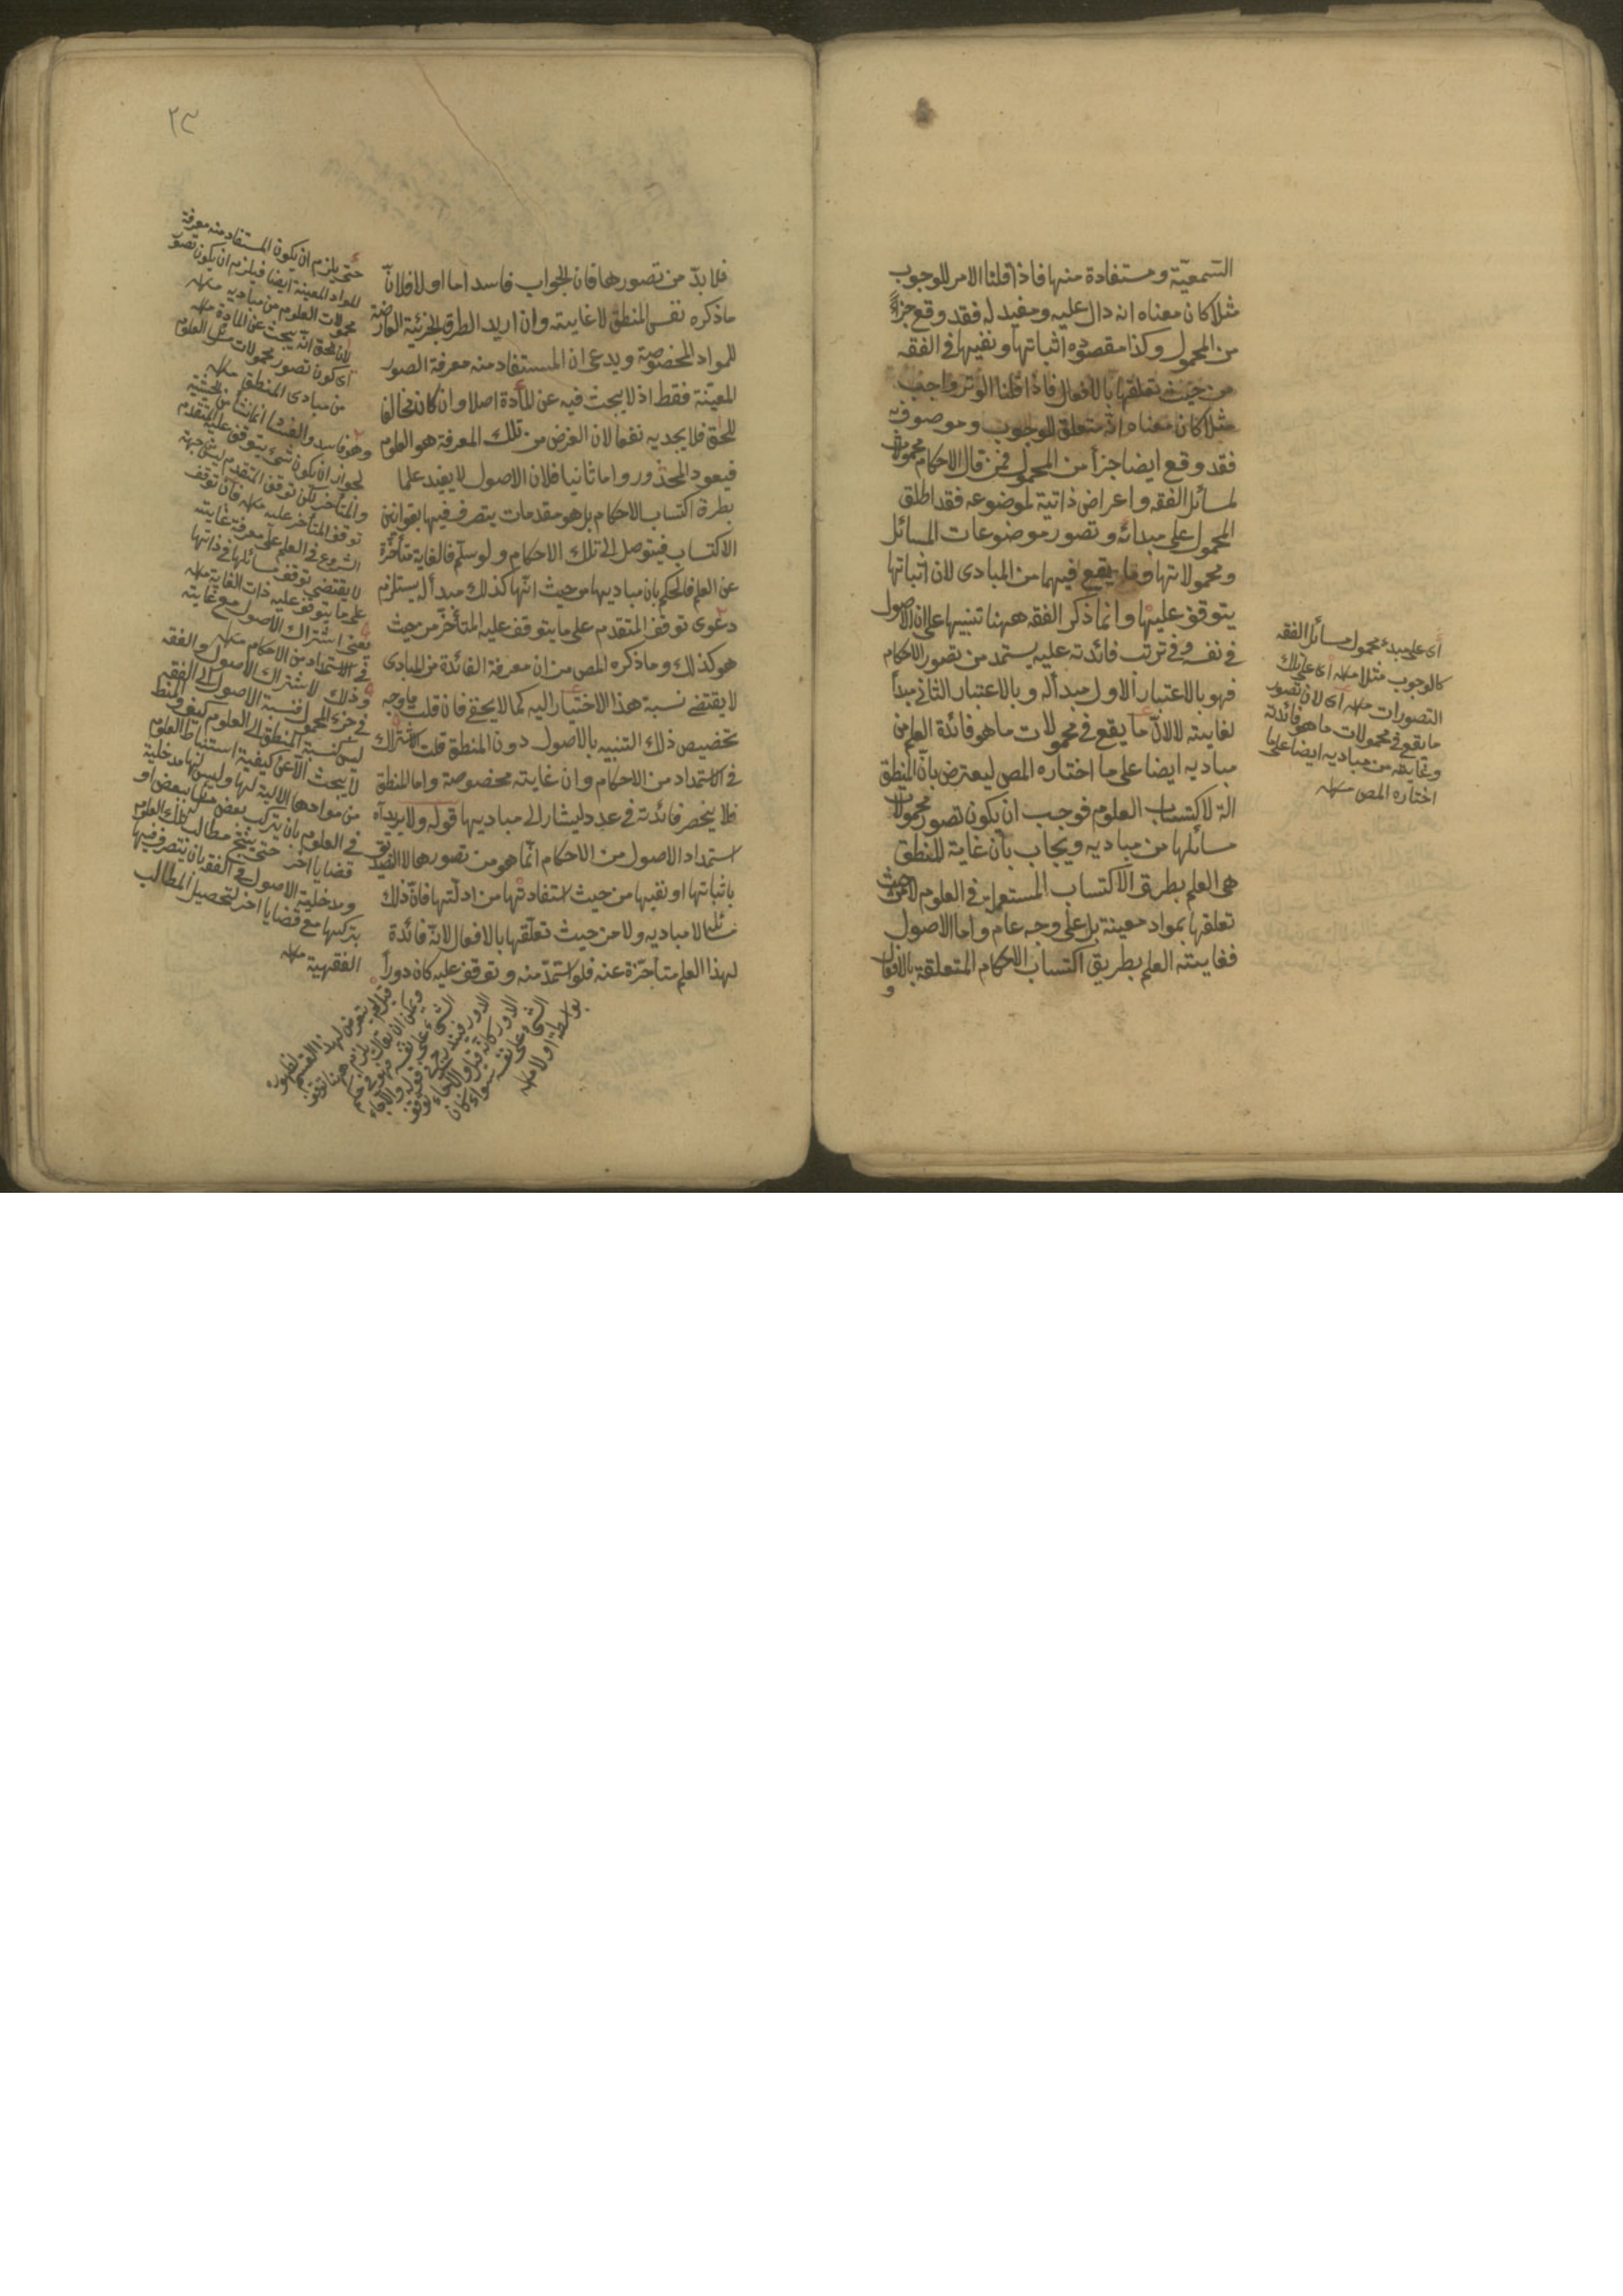 السمعيّة ومستفادة منها فاذا قلنا الامر للوجوب
مثلا كان معناه انه دال عليه ومفيد له فقد وقع جزأً
من المحمول وكذا مقصوده اثباتها ونفيها في الفقه
من حيث تعلقها بالافعال فاذا قلنا الوتر واجب
مثلا كان معناه انه متعلق الوجوب وموصوف به
فقد وقع ايضا جزأ من المحمول فمن قال الاحكام محمولات
لمسائل الفقه واعراض ذاتية لموضوعه فقد اطلق
المحمول على مبدائه وتصور موضوعات المسائل
ومحمولاتها وما يقع فيهما من المبادى لان اثباتها
يتوقف عليها وانما ذكر الفقه ههنا تنبيها على ان الاصول
في نفسه وفي ترتب فائدته عليه يستمد من تصور الاحكام
فهو بالاعتبار الاول مبدأ له وبالاعتبار الثاني مبدأ
لغايته لا لانّ ما يقع في محمولات ما هو فائدة العلم من
مباديه ايضا على ما اختاره المص ليعترض بأن المنطق
الة لاكتساب العلوم فوجب ان يكون تصور محمولات
مسائلها من مباديه ويجاب بأن غاية المنطق
هى العلم بطريق الاكتساب المستعمل في العلوم لا من حيث
تعلقها بمواد معينة بل على وجه عام واما الاصول
فغايته العلم بطريق اكتساب الاحكام المتعلقة بالافعال
و
اى على مبدء محمول مسائل الفقه
كالوجوب مثلا منه اى على تلك
التصورات منه اى لان تصور
ما يقع في محمولات ما هو فائدته
وغايته من مباديه ايضا على ما
اختاره المص منه
٢٣
فلا بدّ من تصورها فان الجواب فاسد اما اولا فلانّ
ما ذكره نفس المنطق لا غايته وان اريد الطرق الجزئية العارضة
للمواد المخصوصة ويدعى ان المستفاد منه معرفة الصور
المعيّنة فقط اذ لا يبحث فيه عن المادة اصلا وان كان مخالفا
للحق فلا يجديه نفعا لان الغرض من تلك المعرفة هو العلوم
فيعود المحذور واما ثانيا فلان الاصول لا يفيد علما
بطرق اكتساب الاحكام بل هو مقدمات يتصرف فيها بقوانين
الاكتساب فيتوصل الى تلك الاحكام ولو سلّم فالغاية متأخرة
عن العلم فالحكم بان مباديها من حيث انها كذلك مبدأ له يستلزم
دعوى توقف المتقدم على ما يتوقف عليه المتأخر من حيث
هو كذلك وما ذكره المص من ان معرفة الفائدة من المبادى
لا يقتضى نسبة هذا الاختيار اليه كما لا يخفى فان قلت ما وجه
تخصيص ذلك التنبيه بالاصول دون المنطق قلت اشتراك
في الاستمداد من الاحكام وان غايته مخصوصة واما المنطق
فلا ينحصر فائدته في عدد ليشار الى مباديها قوله ولا يريد انّ
استمداد الاصول من الاحكام انّما هو من تصورها لا التصديق
باثباتها او نفيها من حيث استفادتها من ادلّتها فانّ ذلك
مسائله لا مباديه ولا من حيث تعلّقها بالافعال لانّه فائدة
لهذا العلم متأخرة عنه فلو استمدّ منه وتوقف عليه كان دوراً
حتى يلزم ان يكون المستفاد منه معرفة
المواد المعينة ايضا فيلزم ان يكون تصور
محمولات العلوم من مباديه منه
لان الحق انّه يبحث عن المادة منه
اى كون تصور محمولات مسائل العلوم
من مبادى المنطق منه
وهو فاسد والفساد انما نشأ من الحيثية
لجواز ان يكون شئ يتوقف عليه المتقدم
والمتأخر لكن توقف المتقدم ليس من جهة
توقف المتأخر عليه منه فان توقف
الشروع في العلم على معرفة غايته
لا يقتضى توقف مسائلها في ذاتها
على ما يتوقف عليه ذات الغاية منه
يعنى اشتراك الاصول مع غايته
في الاستمداد من الاحكام منه
وذلك لاشتراك الاصول والفقه
في جزء المحمول فنسبة الاصول الى الفقه
ليس كنسبة المنطق الى العلوم كيف والمنطق
لا يبحث الا عن كيفية استنباط العلوم
من موادها الالية لها وليس لها مدخلية
في العلوم بان يتركب بعض منها ببعض او
قضايا اخر حتى ينتج مطالب تلك العلوم
ومدخلية الاصول في الفقه بان يتصرف فيها
بتركيبها مع قضايا اخر لتحصيل المطالب
الفقهية منه
بواسطة او لا منه